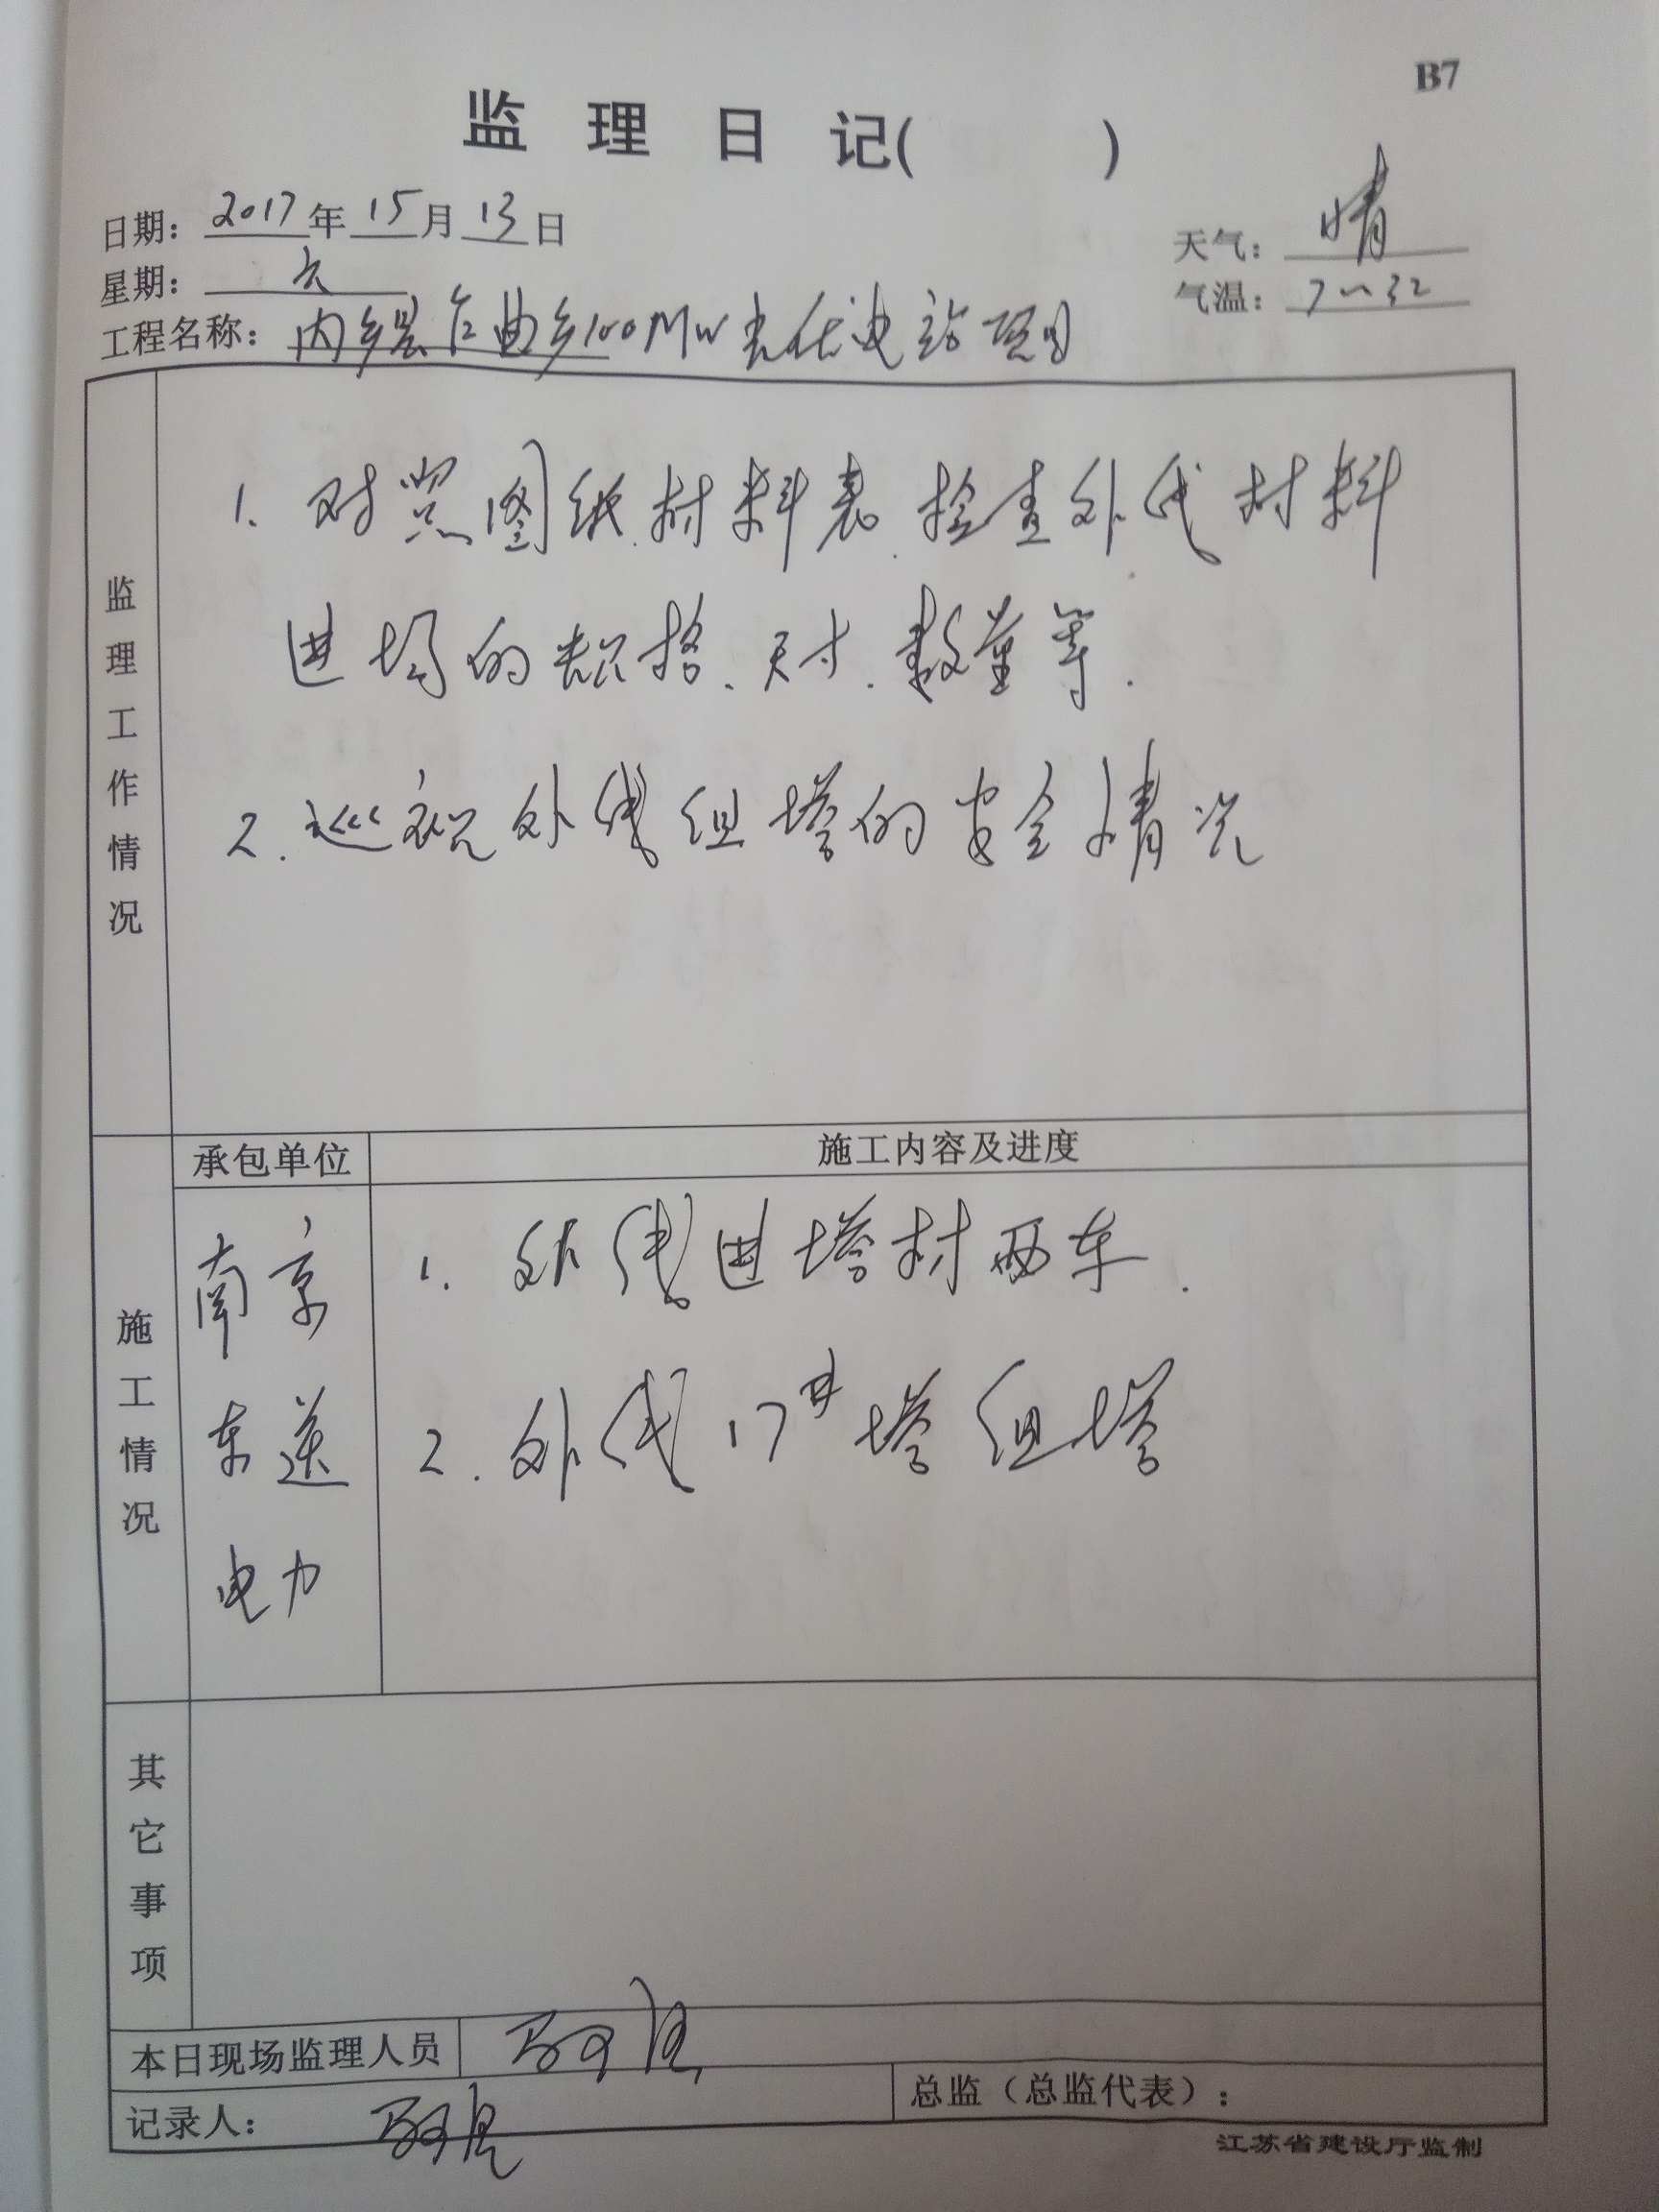 B7
监理日记( )
日期: 2017年15月13日
天气: 晴
星期: 六
气温: 7~32
工程名称: 内乡县乍曲乡100MW光伏电站项目
监理工作情况
1. 对照图纸材料表、检查外线材料
进场的规格、尺寸、数量等.
2. 巡视外线组塔的安全情况
承包单位
施工内容及进度
施工情况
南京
东送
电力
1. 外线进塔材两车.
2. 外线17#塔组塔
其它事项
本日现场监理人员
记录人:
总监(总监代表):
江苏省建设厅监制